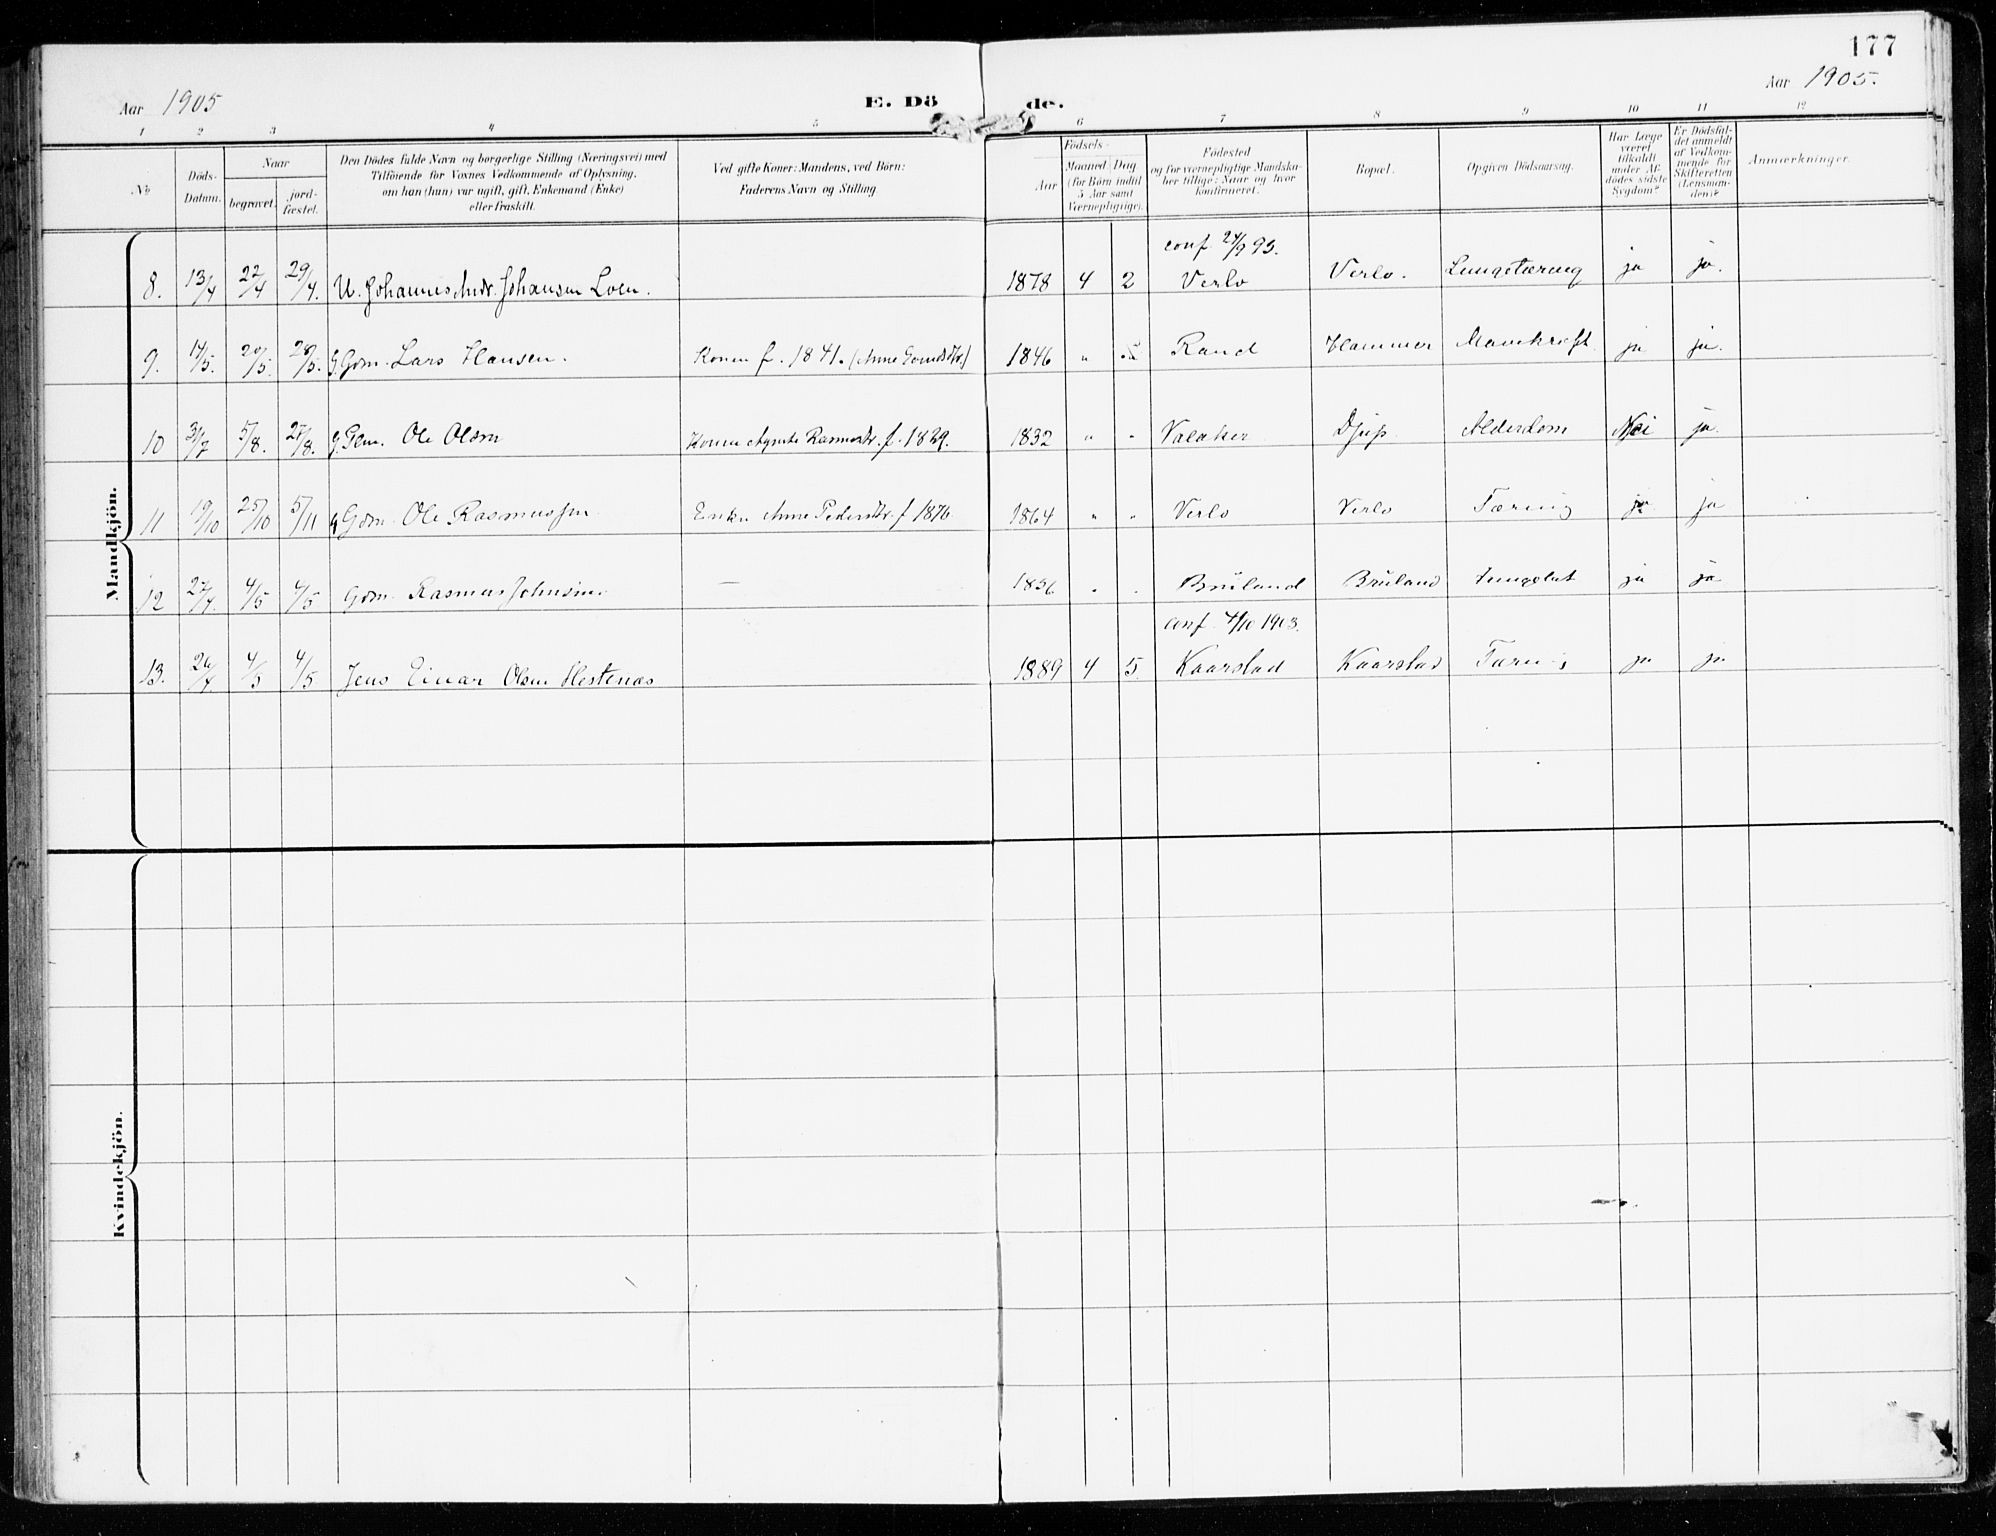 177
Aar 1905 E. Dö de. Aar 1905.
1 2 3 4 5 6 7 8 9 10 11 12
No
Döds-
Datum.
Naar
begravet.
jord-
fæstet.
Den Dödes fulde Navn og borgerlige Stilling (Næringsvei) med
Tilföiende for Voxnes Vedkommende af Oplysning,
om han (hun) var ugift, gift, Enkemand (Enke)
eller fraskilt.
Ved gifte Koner: Mandens, ved Börn:
Faderens Navn og Stilling.
Födsels-
Aar
Maaned Dag
(for Börn indtil
5 Aar samt
Værnepligtige).
Födested
og for værnepligtige Mandska-
ber tillige: Naar og hvor
konfirmeret.
Bopæl.
Opgiven Dödsaarsag.
Har Læge
været
tilkaldt
under Af-
dödes sidste
Sygdom?
Er Dödsfal-
det anmeldt
af Vedkom-
mende for
Skifteretten
(Lensman-
den)?
Anmærkninger.
Mandkjön.
conf. 24/9 93.
8. 13/4 22/4 29/4. U. Johannes Andr. Johansen Loen. 1878 4 2 Verlo Verlo. Lungetæring ja ja.
9. 14/5. 20/5. 28/5. G. Gdm. Lars Hansen. Konen f. 1841. (Anne 1846 " Rand Hammer Mavekræft. ja ja.
10 31/7 5/8. 27/8. G. Ole Olsen Konen Agnete Rasmusdtr. f. 1829. 1832 " " Valaker Djup Alderdom Nei ja.
11 19/10 25/10 5/11 G Gdm. Ole Rasmussen Enken Anne Pedersdtr. f 1870. 1864 " " Verlo Verlo Tæring ja ja
12 27/4. 4/5 4/5 Gdm. Rasmus Johnsen. — 1836 " . Bruland Bruland ja ja
conf. 4/10 1903.
13. 26/4. 4/5 4/5 Jens Einar Olsen Hestenæs 1889 4 5 Kaarstad Kaarstad Tæring ja ja
Kvindekjön.